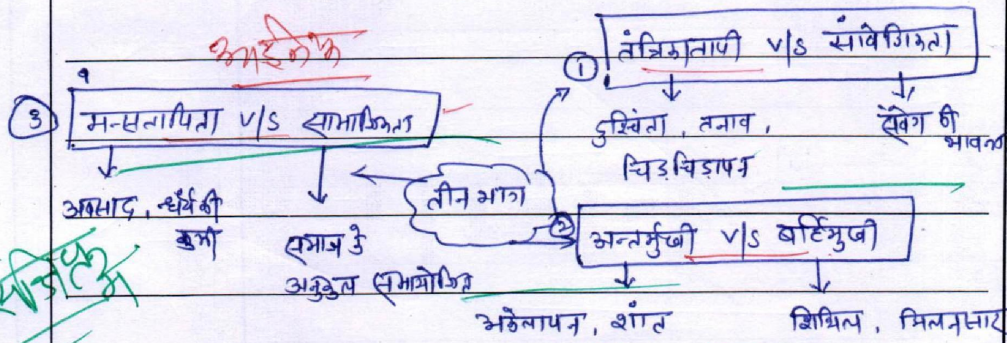 आईजेंक
① तंत्रिकातापी V/S सांवेगिकता
दुश्चिंता, तनाव, चिडचिडापन
संवेग की भावना
③ मन्सतापिता V/S सामाजिकता
अवसाद, धैर्य की कमी
समाज के अनुकुल समायोजित
तीन भाग
② अन्तर्मुखी V/S बर्हिमुखी
अकेलापन, शांत
शिथिल, मिलनसार